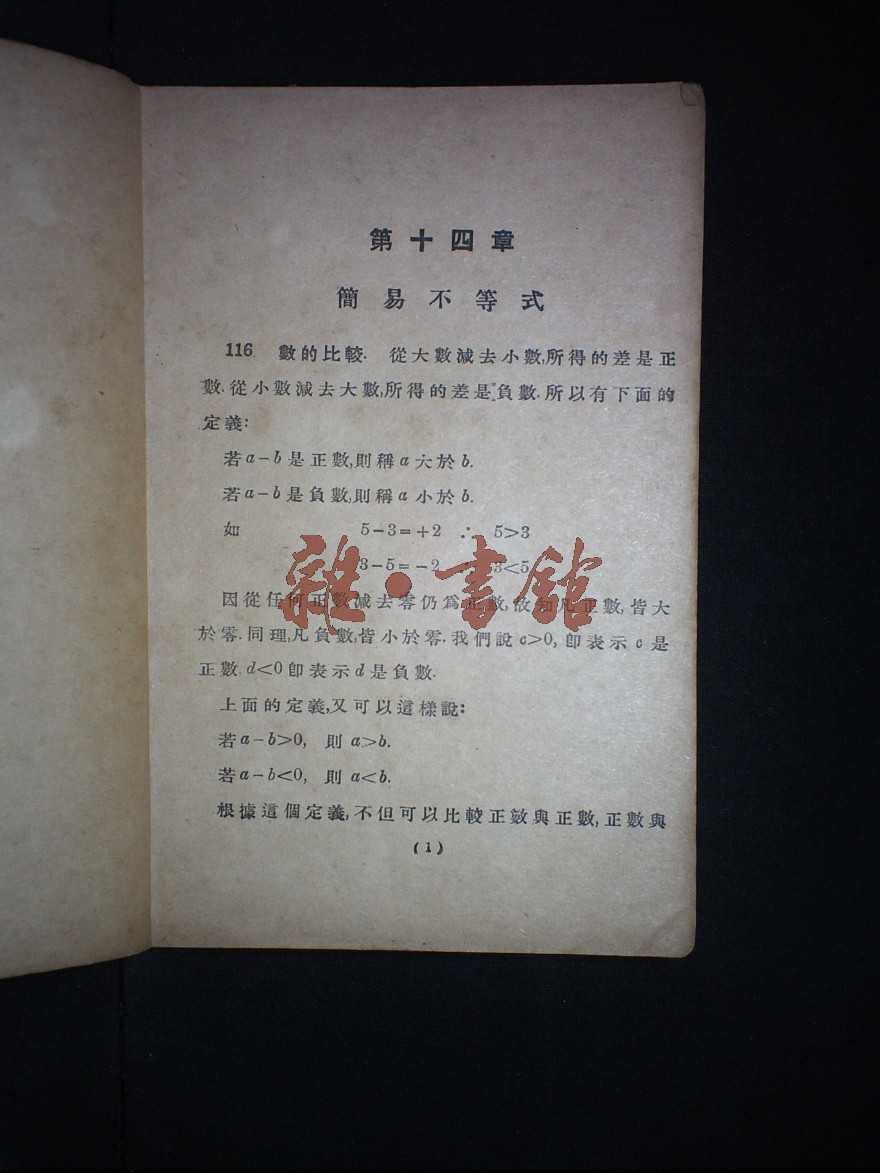 第十四章
簡易不等式
116 數的比較. 從大數減去小數,所得的差是正
數.從小數減去大數,所得的差是負數.所以有下面的
定義:
若a-b是正數,則稱a大於b.
若a-b是負數,則稱a小於b.
如 5-3=+2 ∴ 5>3
3-5=-2 3<5
雜·書館
因從任何正數減去零仍爲正數,故知凡正數,皆大
於零.同理,凡負數,皆小於零.我們說c>0,卽表示c是
正數,d<0卽表示d是負數.
上面的定義,又可以這樣說:
若a-b>0, 則a>b.
若a-b<0, 則a<b.
根據這個定義,不但可以比較正數與正數,正數與
(1)